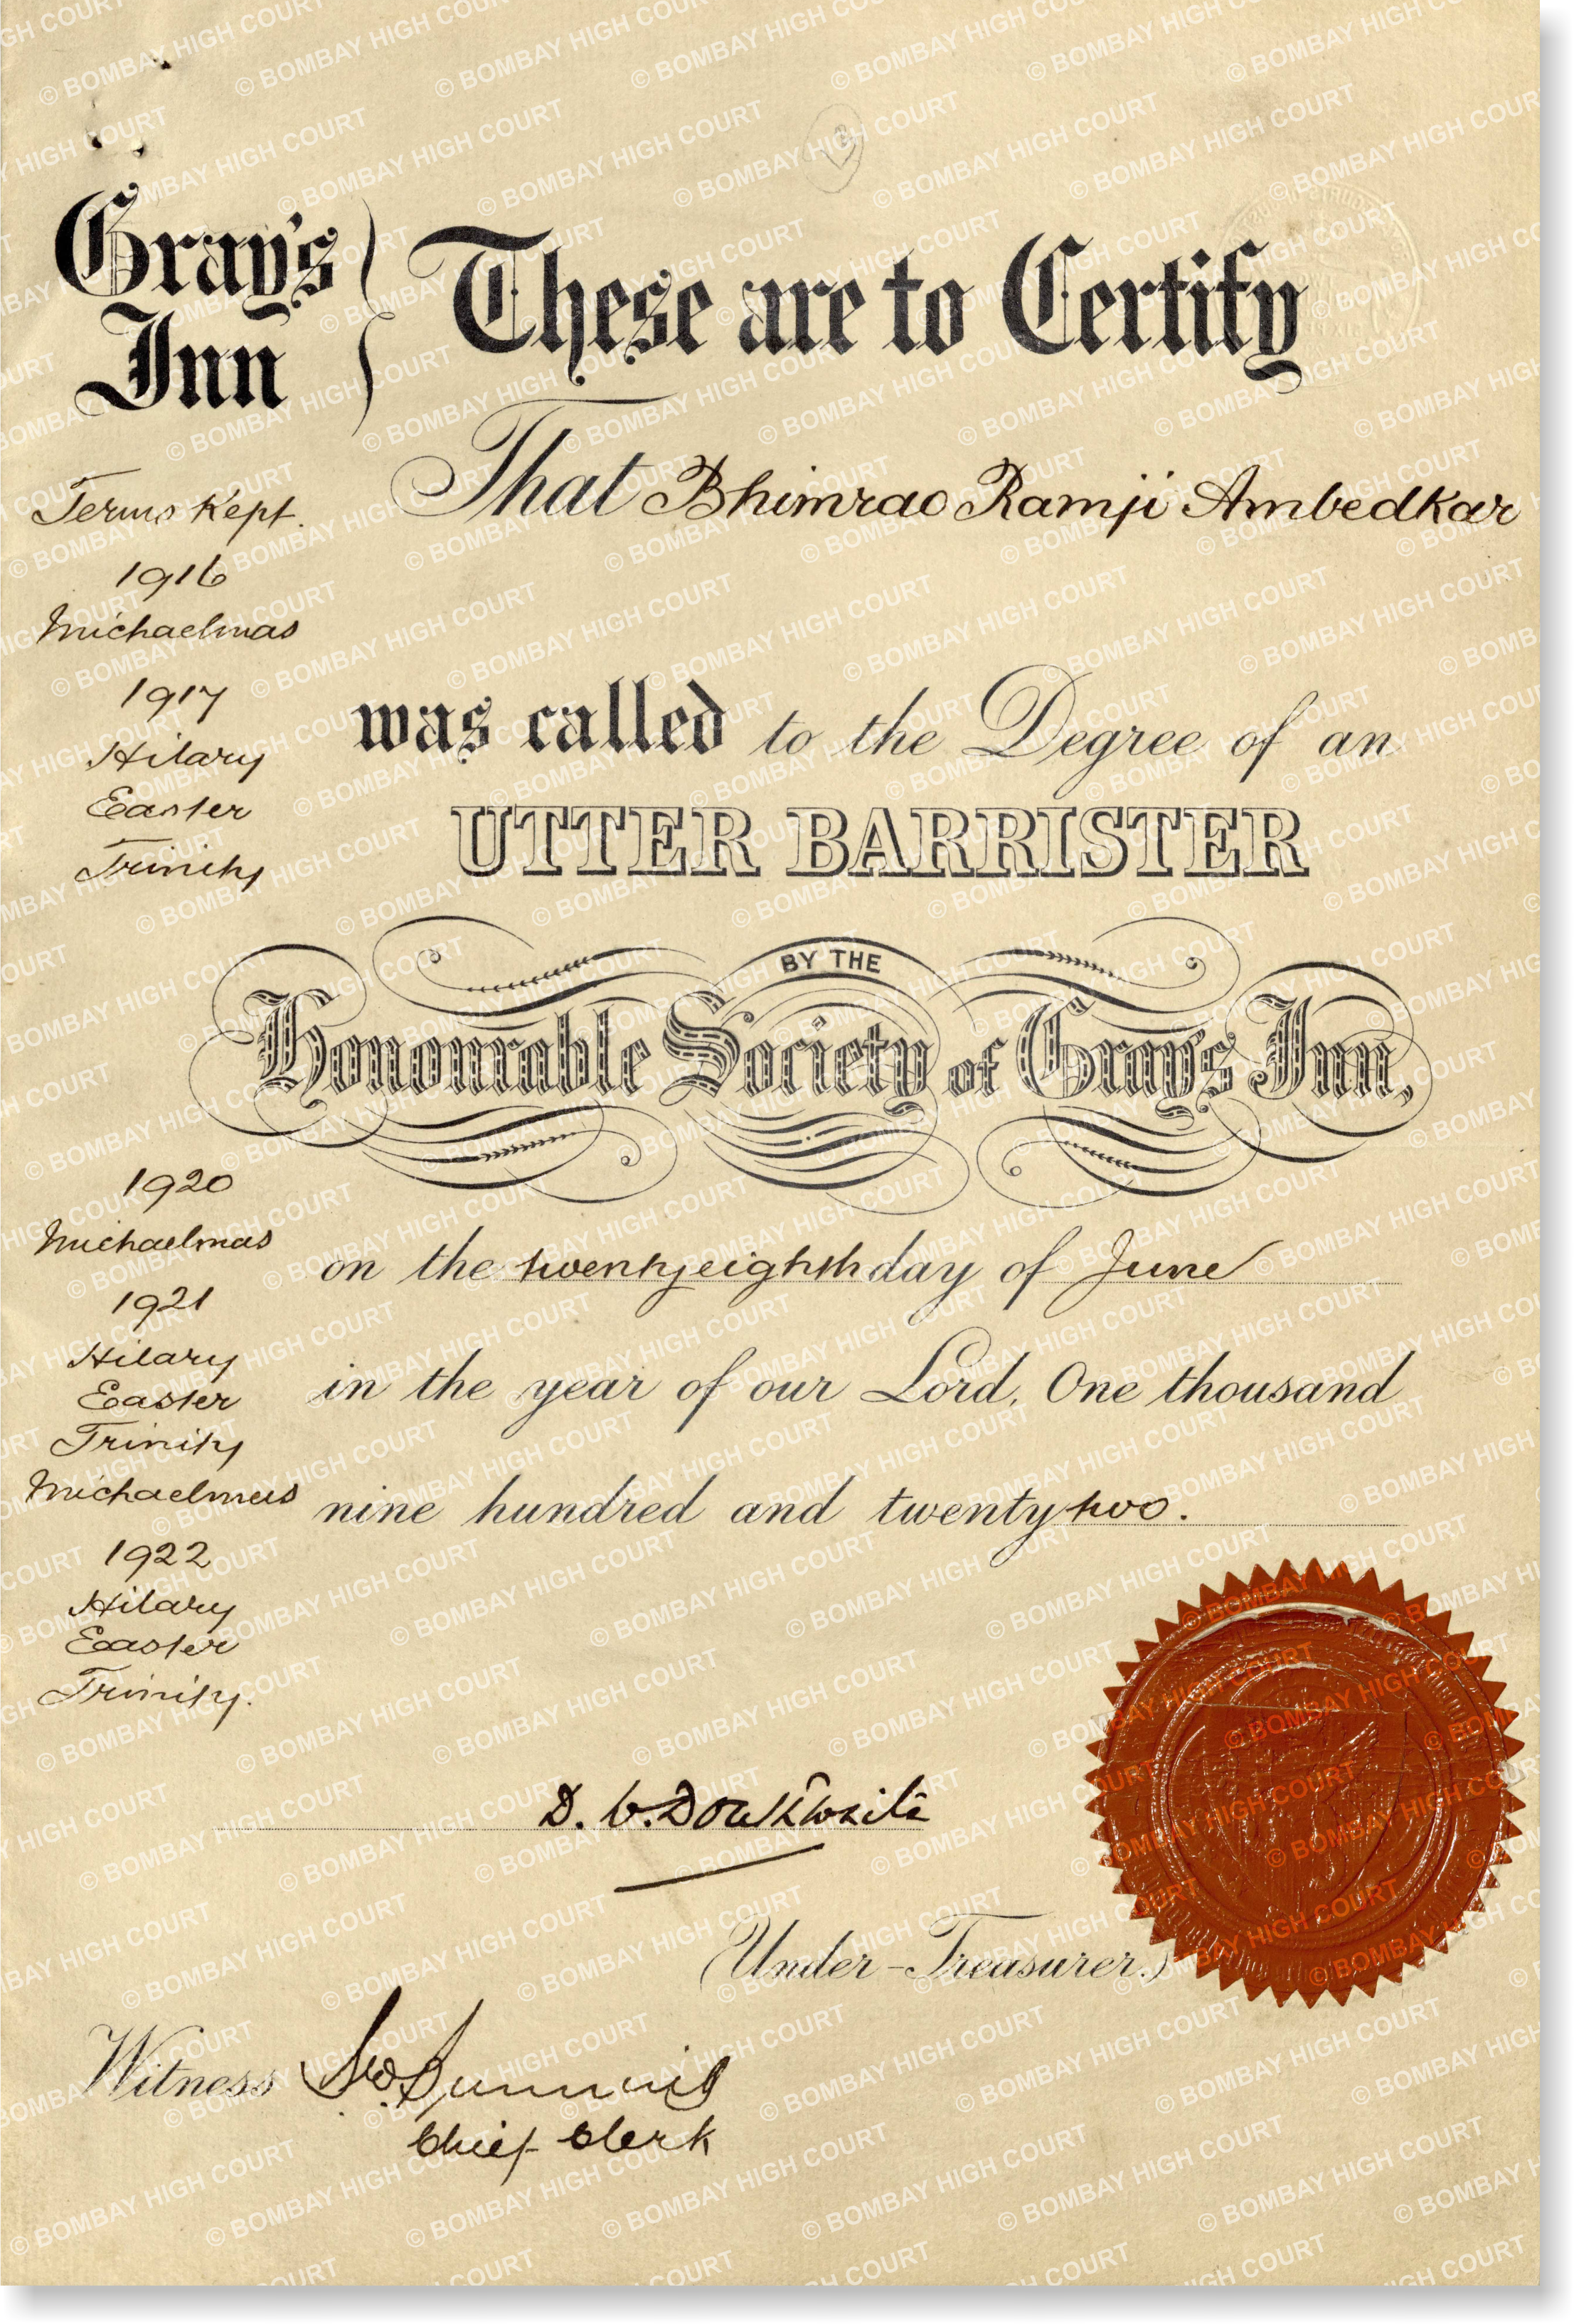 Gray's
Inn
These are to Certify
That Bhimrao Ramji Ambedkar
Terms Kept.
1916
Michaelmas
1917
Hilary
Easter
Trinity
was called to the Degree of an
UTTER BARRISTER
BY THE
Honourable Society of Gray's Inn,
1920
Michaelmas
1921
Hilary
Easter
Trinity
Michaelmas
1922
Hilary
Easter
Trinity.
on the twenty eighth day of June
in the year of our Lord, One thousand
nine hundred and twenty two.
D.
(Under-Treasurer.)
Witness
Chief Clerk
© BOMBAY HIGH COURT